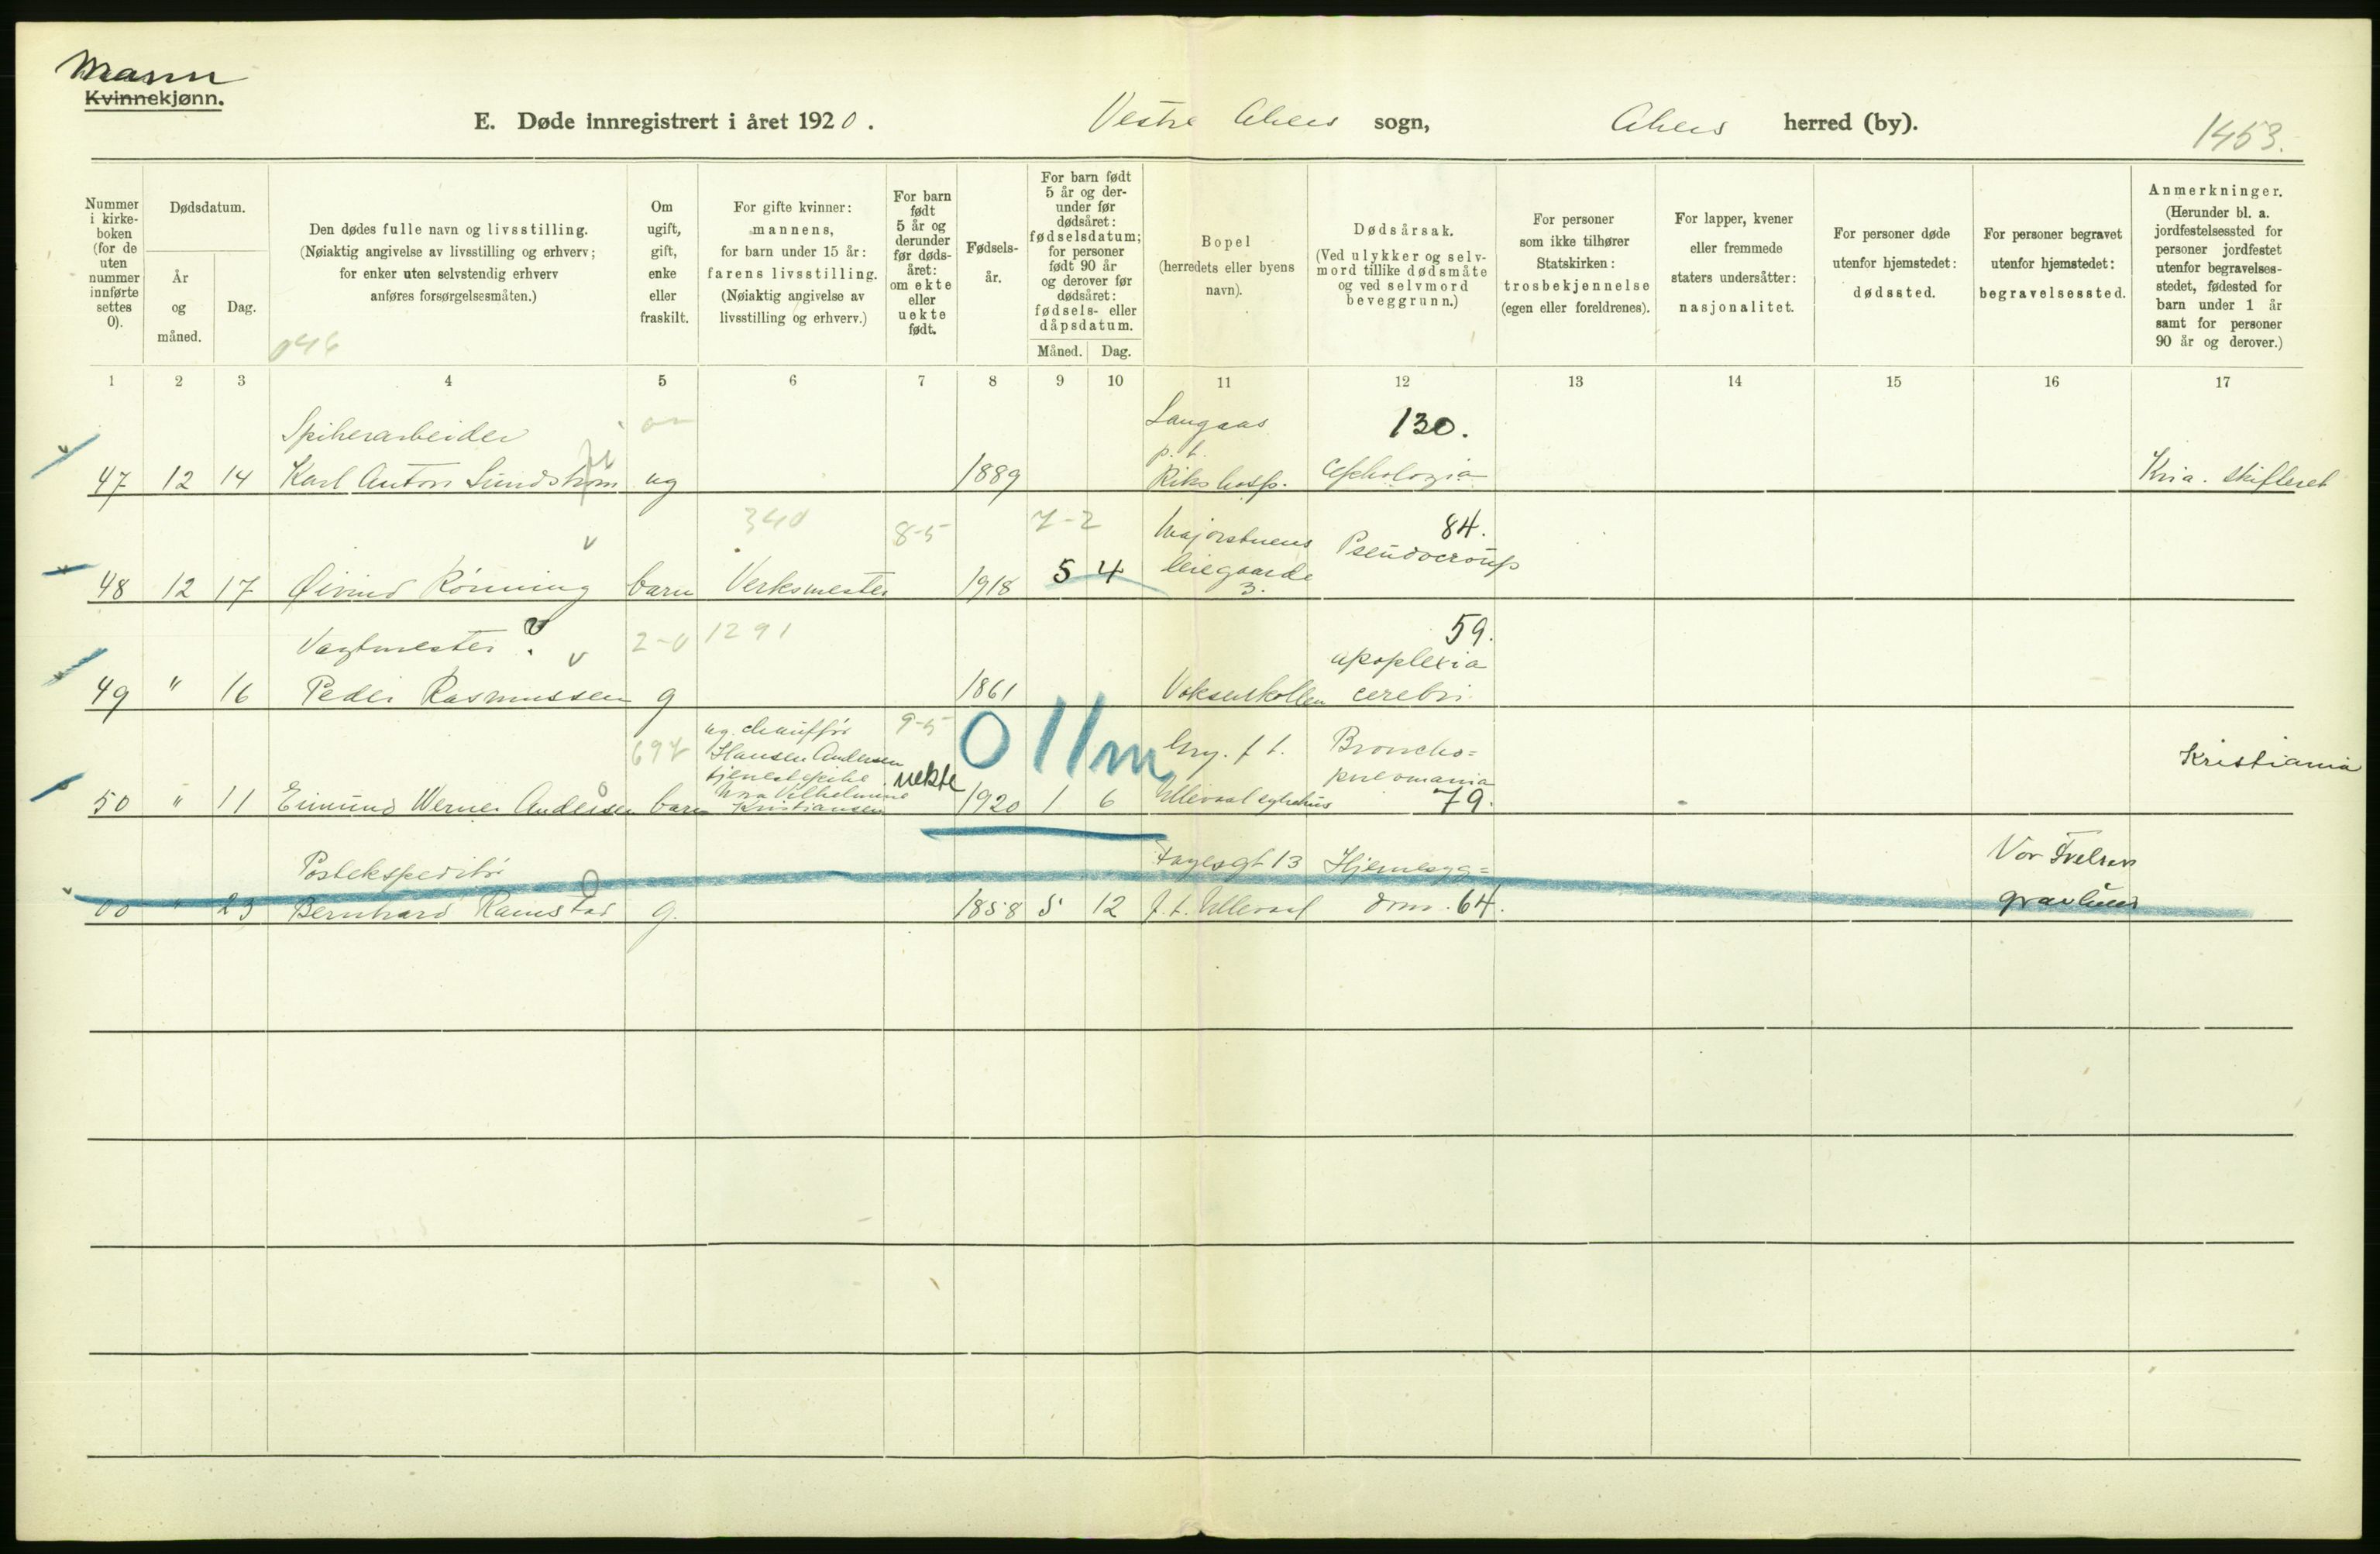 Mann
Kvinnekjønn.
E. Døde innregistrert i året 1920.
Vestre Akers sogn,
Akers herred (by).
1453.
Nummer i kirkeboken (for de uten nummer innførte settes 0).
Dødsdatum.
År og måned.
Dag.
Den dødes fulle navn og livsstilling.
(Nøiaktig angivelse av livsstilling og erhverv;
for enker uten selvstendig erhverv
anføres forsørgelsesmåten.)
046
Om ugift, gift, enke eller fraskilt.
For gifte kvinner:
mannens,
for barn under 15 år:
farens livsstilling.
(Nøiaktig angivelse av
livsstilling og erhverv.)
For barn født 5 år og derunder før dødsåret: om ekte eller uekte født.
Fødselsår.
For barn født 5 år og derunder før dødsåret: fødselsdatum; for personer født 90 år og derover før dødsåret: fødsels- eller dåpsdatum.
Måned. Dag.
Bopel
(herredets eller byens navn).
Dødsårsak.
(Ved ulykker og selvmord tillike dødsmåte og ved selvmord beveggrunn.)
For personer som ikke tilhører Statskirken: trosbekjennelse (egen eller foreldrenes).
For lapper, kvener eller fremmede staters undersåtter: nasjonalitet.
For personer døde utenfor hjemstedet: dødssted.
For personer begravet utenfor hjemstedet: begravelsessted.
Anmerkninger.
(Herunder bl. a. jordfestelsessted for personer jordfestet utenfor begravelsesstedet, fødested for barn under 1 år samt for personer 90 år og derover.)
1 2 3 4 5 6 7 8 9 10 11 12 13 14 15 16 17
Spikerarbeider Langaas 130.
p. t.
47 12 14 Karl Anton Sundstrøm ug 1889 Rikshosp. Kria. skifteret
340 8-5 7-2 Majorstuens 84.
Pseudocroup
48 12 17 Øivind Rönning barn Verksmester 1918 5 4 leiegaarde
3.
Vagtmester ? 2-0 1291 59.
apoplexia
49 " 16 Peder Rasmussen g 1861 Voksenkollen cerebri
ug. chauffør 9-5 0 11m Broncho=
697 Hansen Andersen Kristiania
tjenestepike uekte pneomania
50 " 11 Eimund Werner Andersen barn Vilhelmine Kristiansen 1920 1 6 Ullevaal sykehus 79.
Postekspeditør Fagesgt 13 Hjernesyg= Vor Frelsers
00 " 23 Bernhard Ramstad g. 1858 5 12 p. t. Ullevaal dom. 64. gravlund